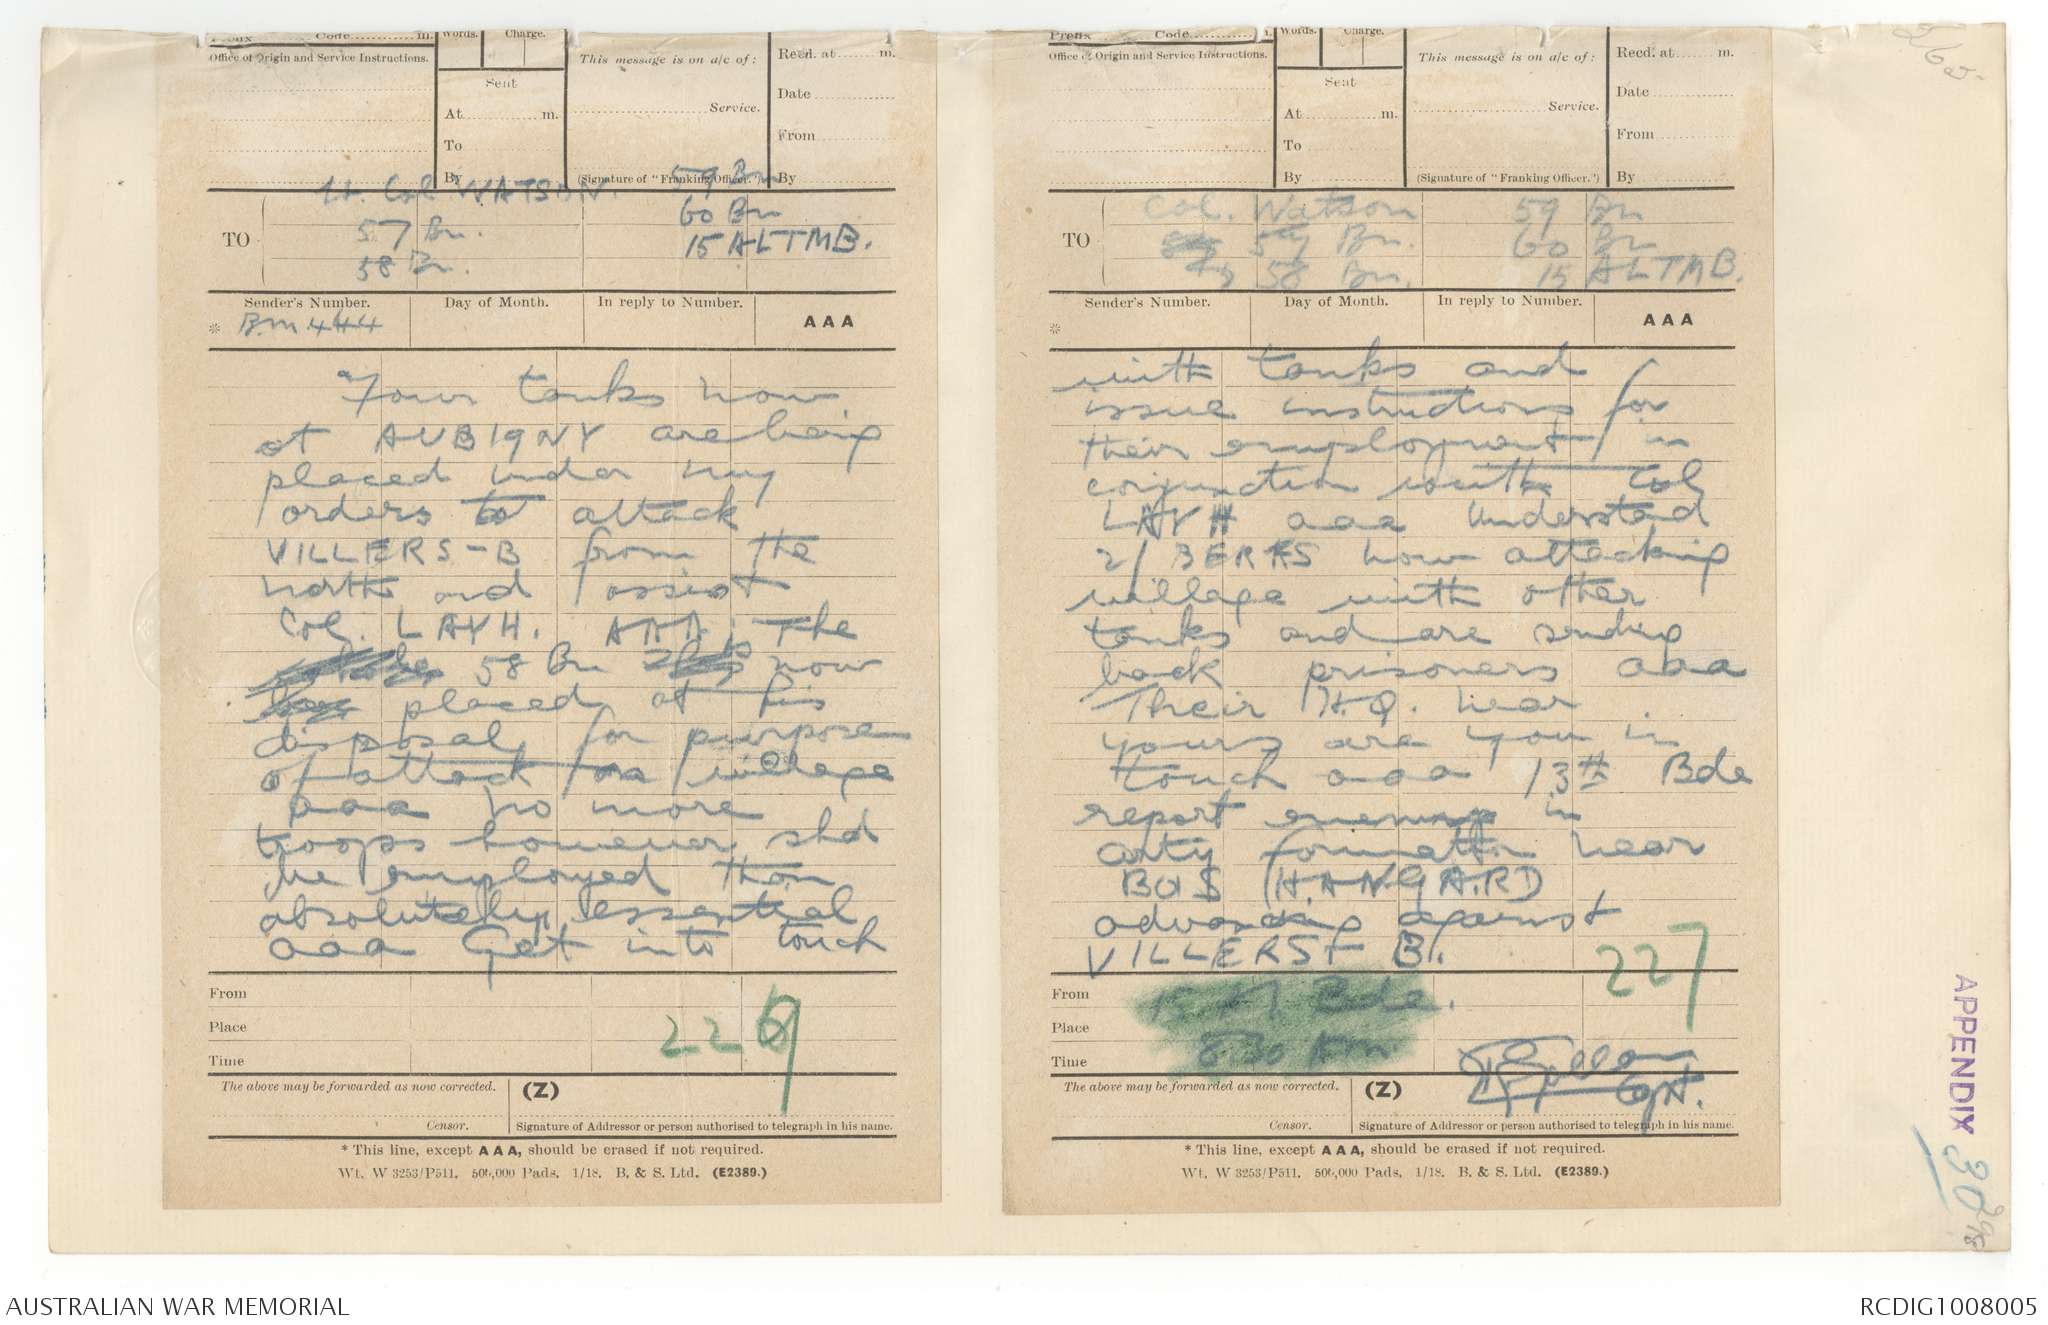 Prefix Code m.
Words. Charge.
Office of Origin and Service Instructions.
Sent
At m.
To
By
This message is on a/c of:
Service.
(Signature of "Franking Officer.")
Recd. at m.
Date
From
By
TO
Lt. Col WATSON. 59 Bn
57 Bn. 60 Bn
58 Bn. 15 ALTMB.
Sender's Number. Day of Month. In reply to Number. AAA
* B.M. 444
Four tanks now
at AUBIGNY are being
placed under my
orders to attack
VILLERS-B from the
north and assist
Col. LAYH. AAA. The
58 Bn is now
placed at his
disposal for purpose
of attack on village
aaa No more
troops however shd
be employed than
absolutely essential
aaa Get into touch
From
Place
Time
226
The above may be forwarded as now corrected. (Z)
Censor. Signature of Addressor or person authorised to telegraph in his name.
* This line, except AAA, should be erased if not required.
Wt. W 3253/P511. 500,000 Pads. 1/18. B. & S. Ltd. (E2389.)
Prefix Code m.
Words. Charge.
Office of Origin and Service Instructions.
Sent
At m.
To
By
This message is on a/c of:
Service.
(Signature of "Franking Officer.")
Recd. at m.
Date
From
By
TO
Col. Watson 59 Bn
57 Bn. 60 Bn
58 Bn. 15 ALTMB.
Sender's Number. Day of Month. In reply to Number. AAA
*
with tanks and
issue instructions for
their employment in
conjunction with Col
LAYH aaa Understand
2/ BERKS now attacking
village with other
tanks and are sending
back prisoners aaa
Their H.Q. near
yours are you in
touch aaa 13th Bde
report enemy in
arty formation near
BOIS HANGARD
advancing against
VILLERS - B.
227
From 15 Bde.
Place
Time 8.30 Am.
Capt.
The above may be forwarded as now corrected. (Z)
Censor. Signature of Addressor or person authorised to telegraph in his name.
* This line, except AAA, should be erased if not required.
Wt. W 3253/P511. 500,000 Pads. 1/18. B. & S. Ltd. (E2389.)
APPENDIX 30
298
AUSTRALIAN WAR MEMORIAL
RCDIG1008005